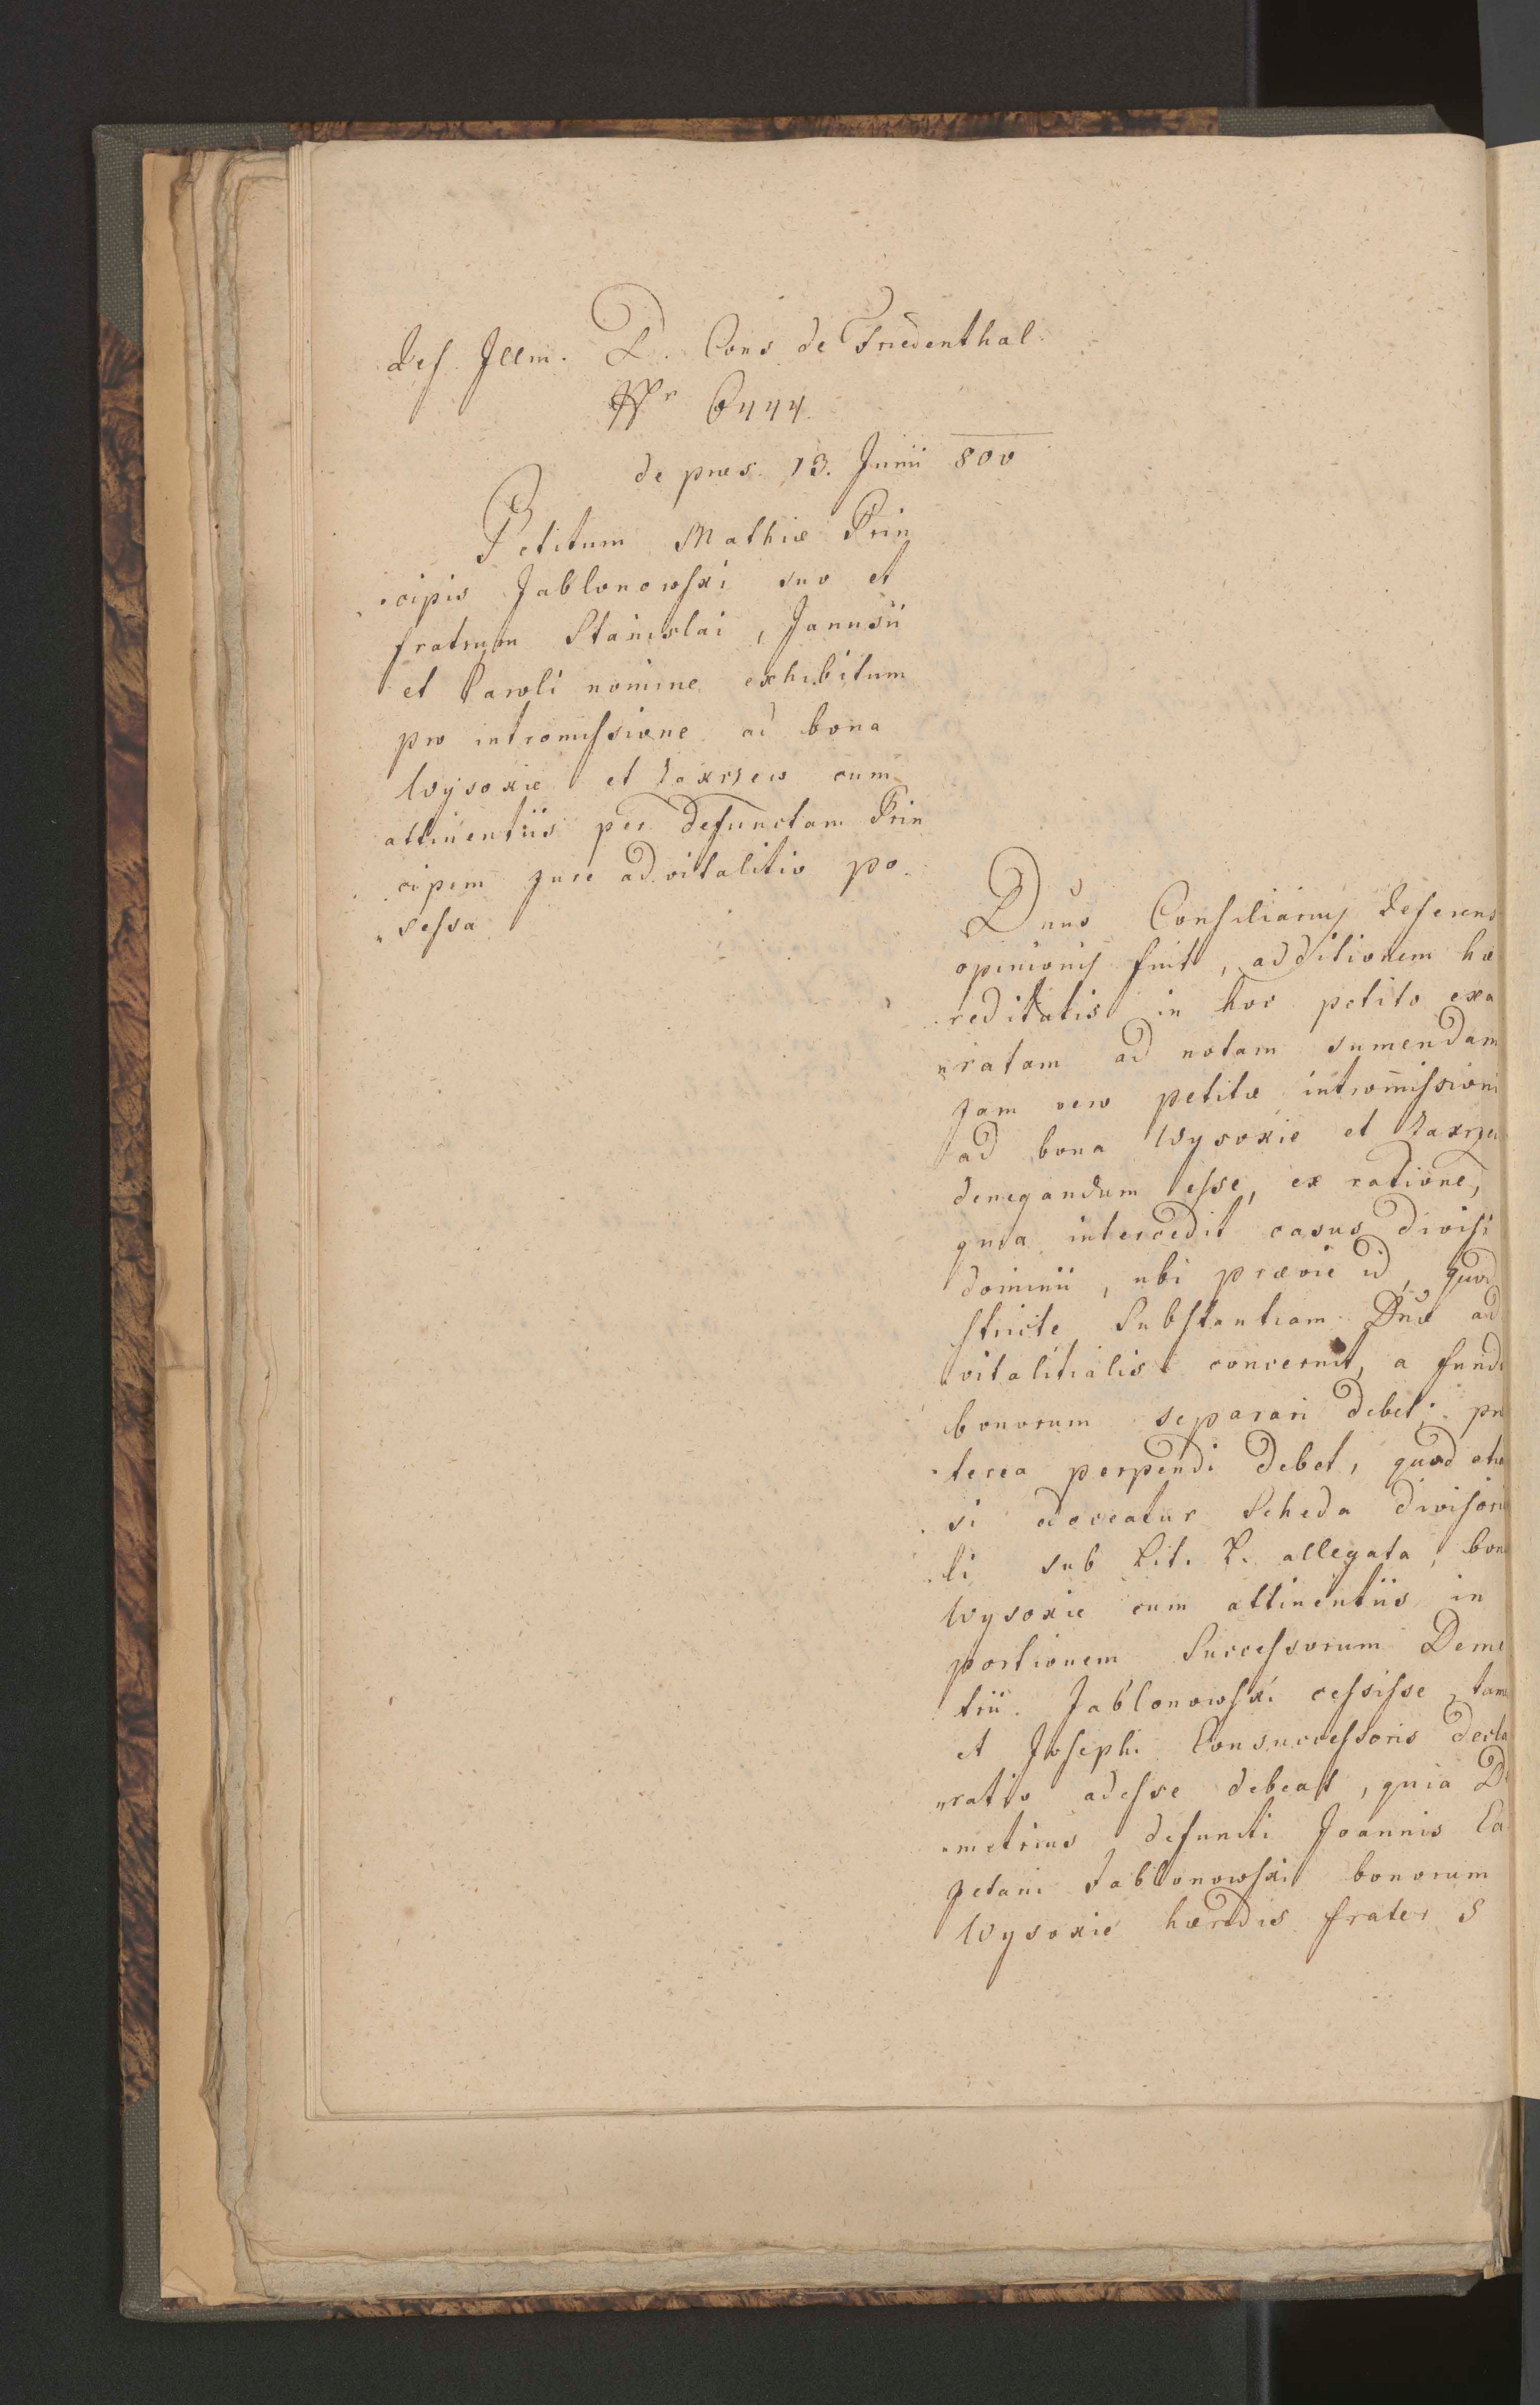 Ref. Illm. D. Cons de Friedenthal.
Nr 6444.
de præs. 13. Junii 800
Petitum Mathiæ Prin
cipis Jablonowski suo et
fratrum Stanislai, Janusii
et Caroli nomine exhibitum
pro intromissione ad bona
Wysokie et Zakrzew cum
attinentiis per defunctam Prin
cipem jure advitalitio po
„sessa
Dnus Consiliarius Referens
opinionis fuit, additionem hæ
reditatis in hoc petito exa
„ratam ad notam sumendam
jam vero petitæ intromissioni
ad bona Wysokie et Zakrze
denegandum esse, ex ratione,
quia intercedit casus divisi
dominii, ubi prævie id, quod
stricte Substantiam Dnæ ad
vitalitialis concernit, a fund
bonorum separari debet; præ
terea perpendi debet, quod etia
si edoceatur Scheda divisori
li sub Lit. L. allegata, bon
Wysokie cum attinentiis in
portionem Successorum Deme
trii Jablonowski cessisse, tam
et Josephi Consuccessoris decla
„ratio adesse debeat, quia De
„metrius defuncti Joannis Ca
jetani Jablonowski bonorum
Wysokie hæredis frater S